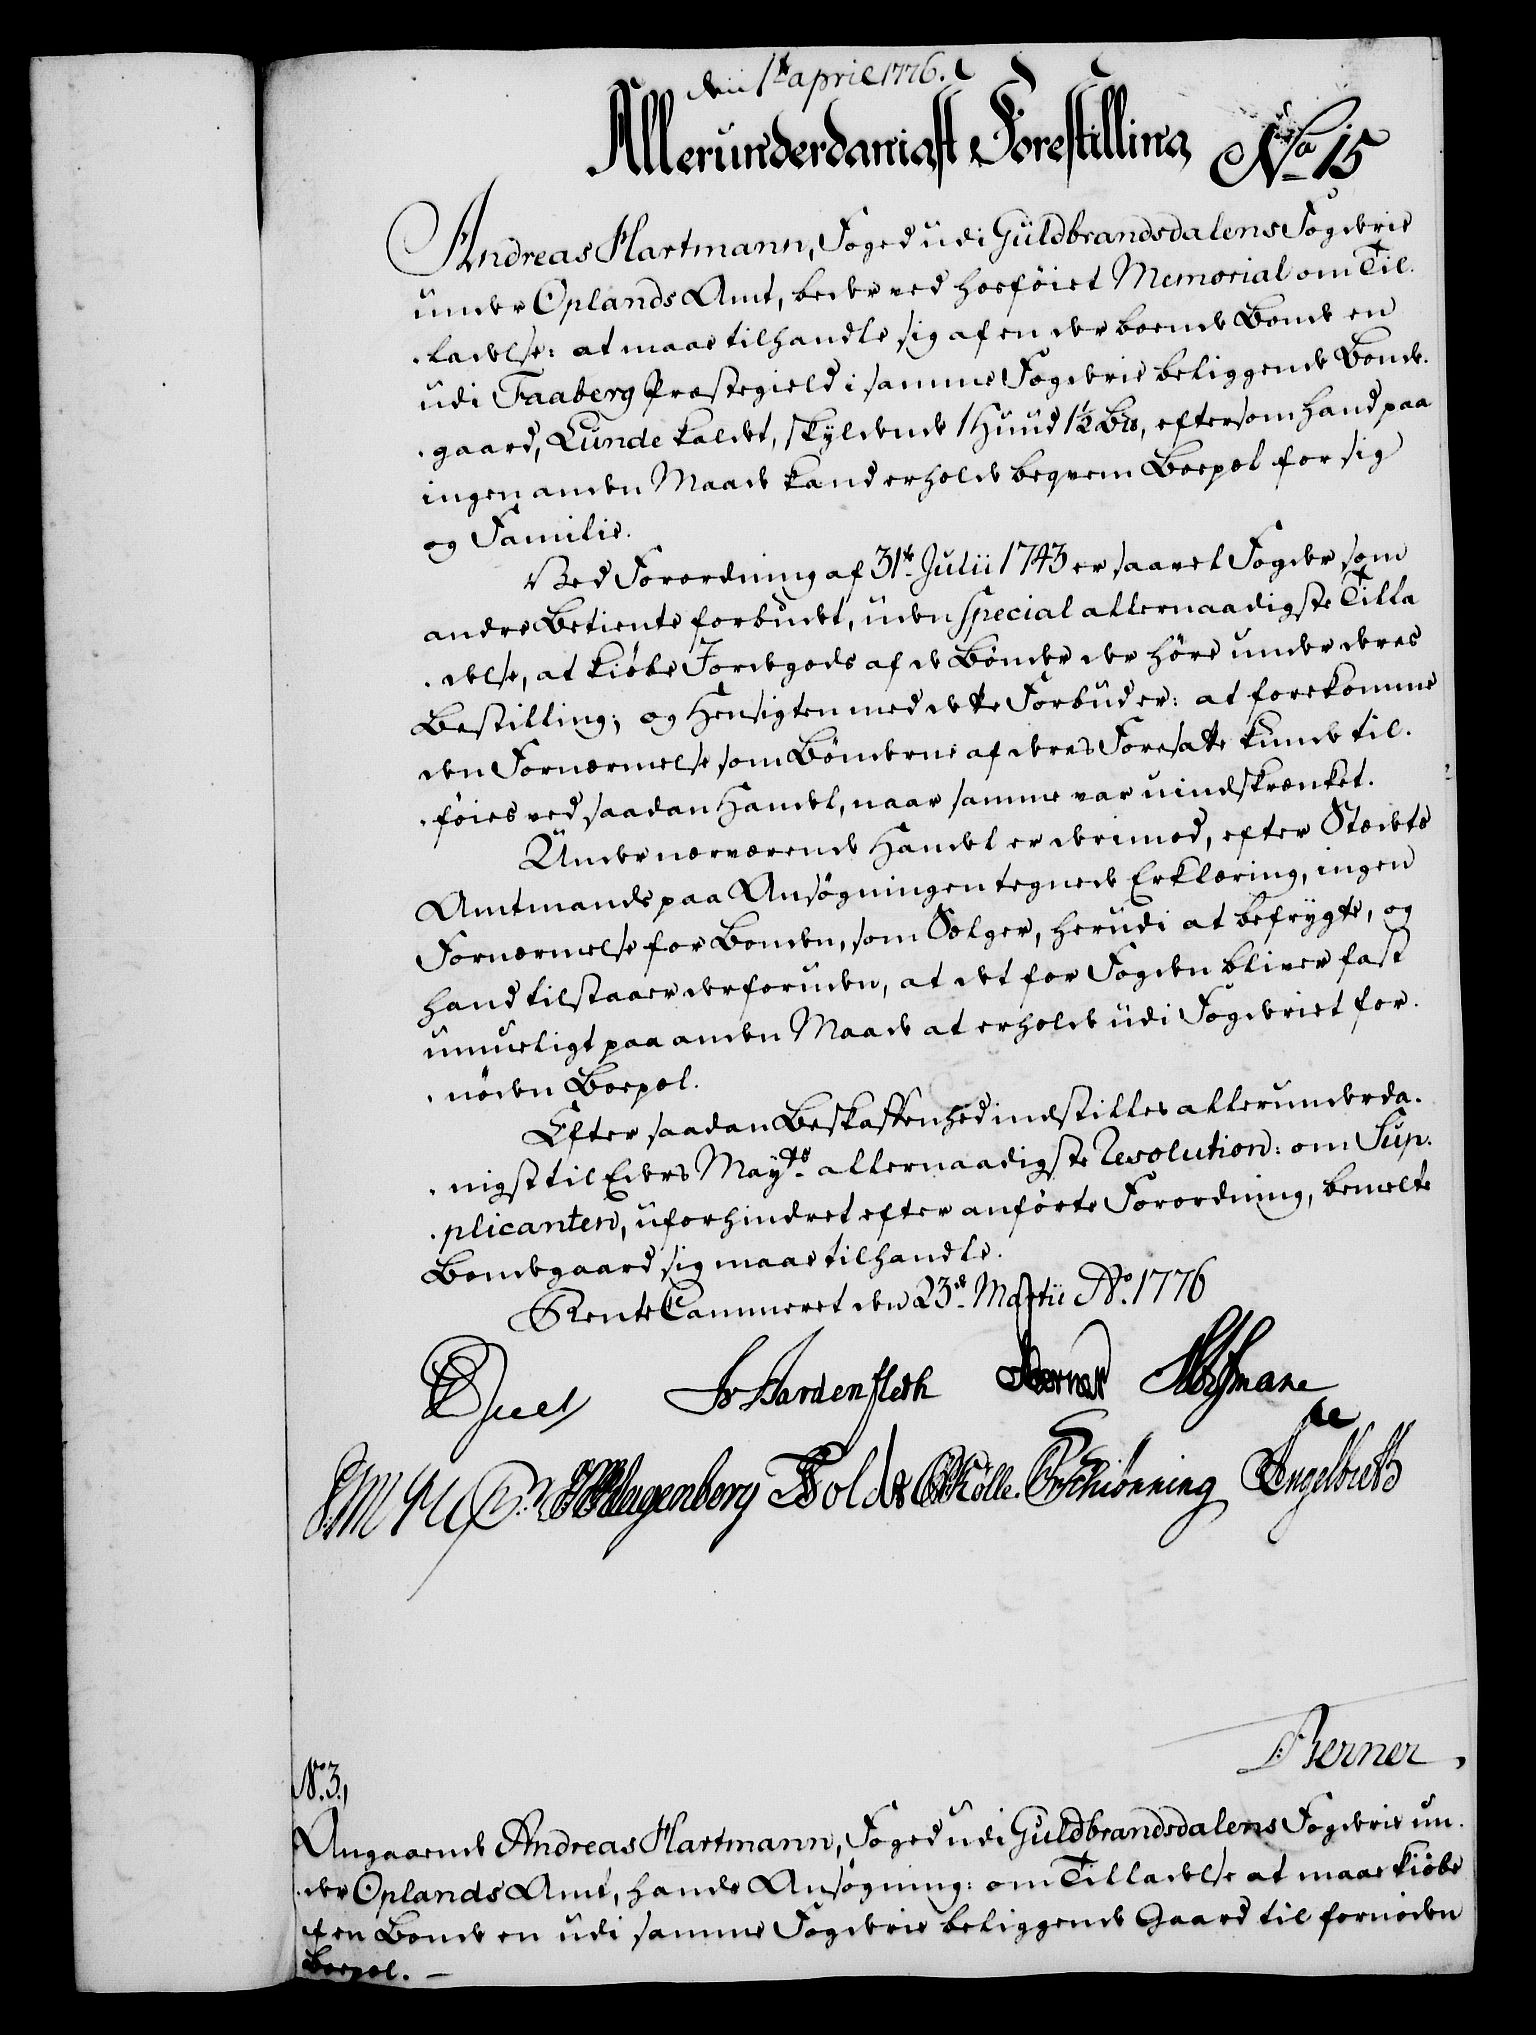 den 1te april 1776.
Allerunderdanigst Forestilling No 15
Andreas Hartmann, Foged udi Guldbrandsdalens Fogderie
under Oplands Amt, beder ved hosföiet Memorial om Til-
-ladelse: at maae tilhandle sig af en der boende Bonde en
udi Faaberg Præstegield i samme Fogderie beliggende Bonde-
-gaard, Lunde kaldet, skyldende 1 Huud 1½ Bs., eftersom hand paa
ingen anden Maade kand erholde beqvem Boepæl for sig
og Familie.
Ved Forordning af 31te Julii 1743 er saavel Fogder som
andre Betiente forbudet, uden special allernaadigste Tilla
-delse, at kiöbe Jordegods af de Bönder der höre under deres
Bestilling; og Hensigten med dette Forbud er: at forekomme
den Fornærmelse som Bönderne af deres Foresatte kunde til-
-föies ved saadan Handel, naar samme var uindskrænket.
Under nærværende Handel er derimod, efter Stædets
Amtmands paa Ansögningen tegnede Erklæring, ingen
Fornærmelse for Bonden, som Sælger, herudi at befrygte, og
hand tilstaaer derforuden, at det for Fogden bliver fast
umueligt paa anden Maade at erholde udi Fogderiet for-
-nöden Boepæl.
Efter saadan Beskaffenhed indstilles allerunderda-
-nigst til Eders Mayts allernaadigste Resolution: om Sup-
-plicanten, uforhindret efter anförte Forordning, bemelte
Bondegaard sig maae tilhandle.
RenteCammeret den 23de Martii Ao. 1776
Juel JvHardenfleth Berner
Klagenberg Told Kölle. Schiönning Engelbreth
Berner,
No. 3,
Angaaende Andreas Hartmann, Foged udi Guldbrandsdalens Fogderie un-
-der Oplands Amt, hands Ansögning: om Tilladelse at maae kiöbe
af en Bonde en udi samme Fogderie beliggende Gaard til fornöden
Boepæl. –